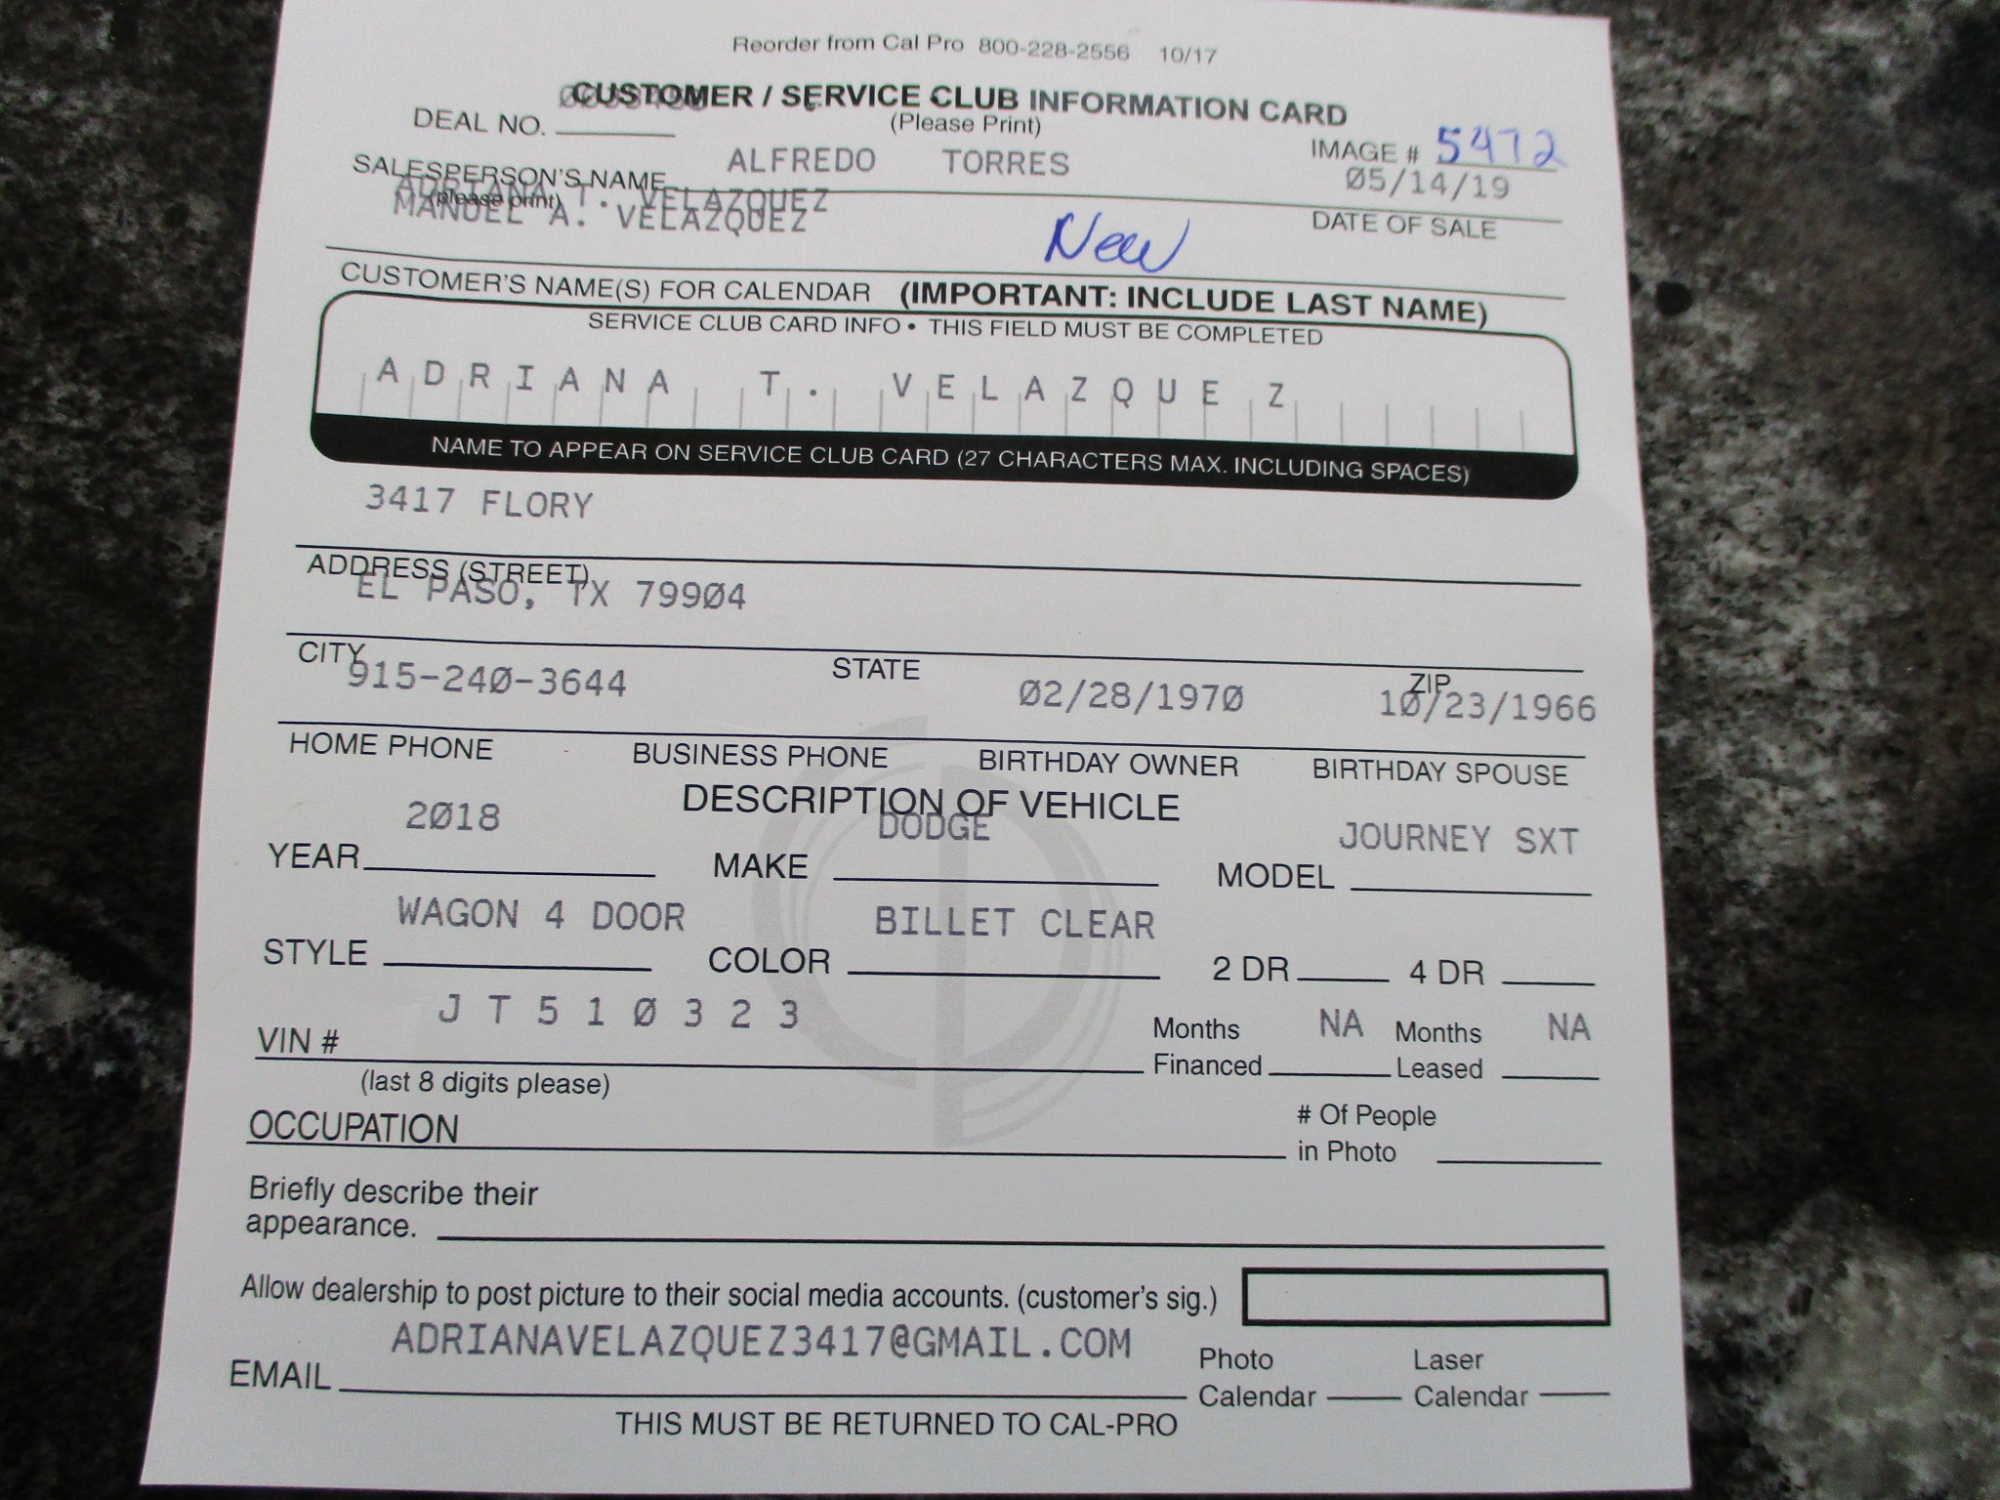 Reorder from Cal Pro 800-228-2556 10/17
CUSTOMER / SERVICE CLUB INFORMATION CARD
DEAL NO.
(Please Print)
IMAGE # 5472
SALESPERSON'S NAME ALFREDO TORRES 05/14/19
(please print)
ADRIANA T. VELAZQUEZ
MANUEL A. VELAZQUEZ
DATE OF SALE
New
CUSTOMER'S NAME(S) FOR CALENDAR (IMPORTANT: INCLUDE LAST NAME)
SERVICE CLUB CARD INFO • THIS FIELD MUST BE COMPLETED
ADRIANA T. VELAZQUEZ
NAME TO APPEAR ON SERVICE CLUB CARD (27 CHARACTERS MAX. INCLUDING SPACES)
3417 FLORY
ADDRESS (STREET)
EL PASO, TX 79904
CITY STATE ZIP
915-240-3644 02/28/1970 10/23/1966
HOME PHONE BUSINESS PHONE BIRTHDAY OWNER BIRTHDAY SPOUSE
DESCRIPTION OF VEHICLE
2018 DODGE JOURNEY SXT
YEAR MAKE MODEL
WAGON 4 DOOR BILLET CLEAR
STYLE COLOR 2 DR 4 DR
JT510323
VIN # Months Financed NA Months Leased NA
(last 8 digits please)
OCCUPATION # Of People in Photo
Briefly describe their
appearance.
Allow dealership to post picture to their social media accounts. (customer's sig.)
ADRIANAVELAZQUEZ3417@GMAIL.COM
EMAIL Photo Calendar Laser Calendar
THIS MUST BE RETURNED TO CAL-PRO